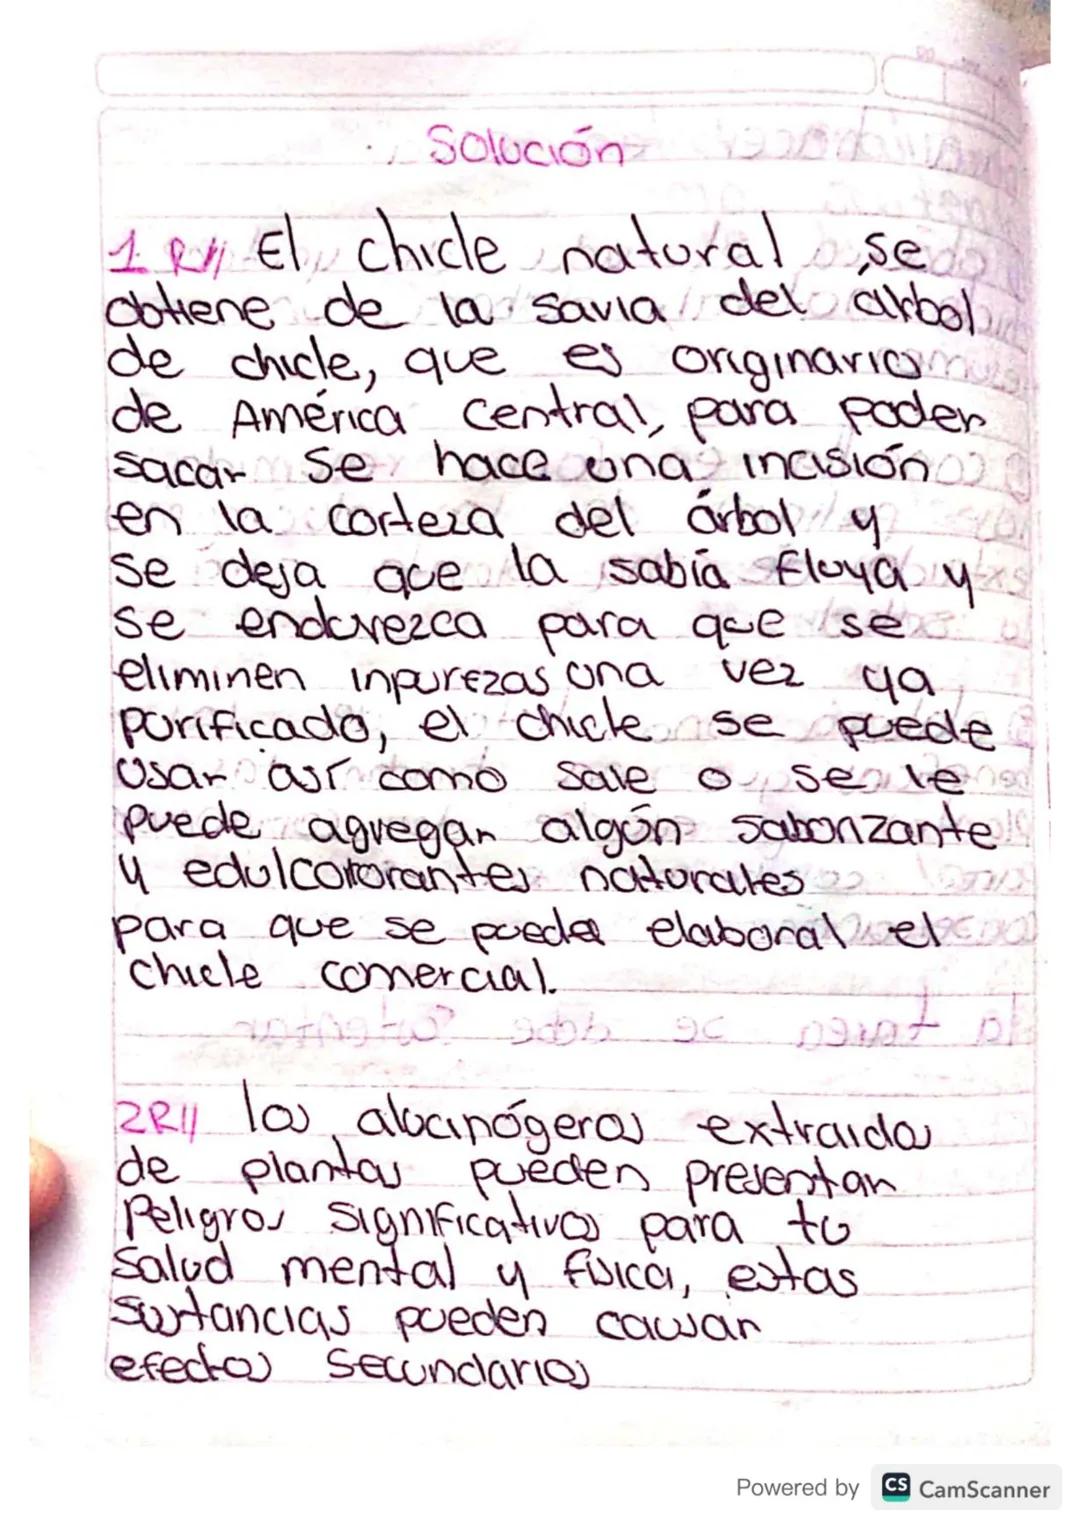 Solución
1 R// El chicle natural se
obtiene de la savia del árbol
de chicle, que es originario
de América Central, para poder
sacar se hace una incisión
en la corteza del árbol y
se deja que la sabia fluya y
se endurezca para que se
eliminen inpurezas una vez ya
purificado, el chicle se puede
usar así como sale o se le
puede agregar algún saborizante
y edulcororantes naturales
para que se pueda elaboral el
chicle comercial.
2R// los alucinógeros extraidos
de plantas pueden presentan
Peligros significativos para tu
Salud mental y física, estas
sustancias pueden causar
efectos secundarios
Powered by CS CamScanner